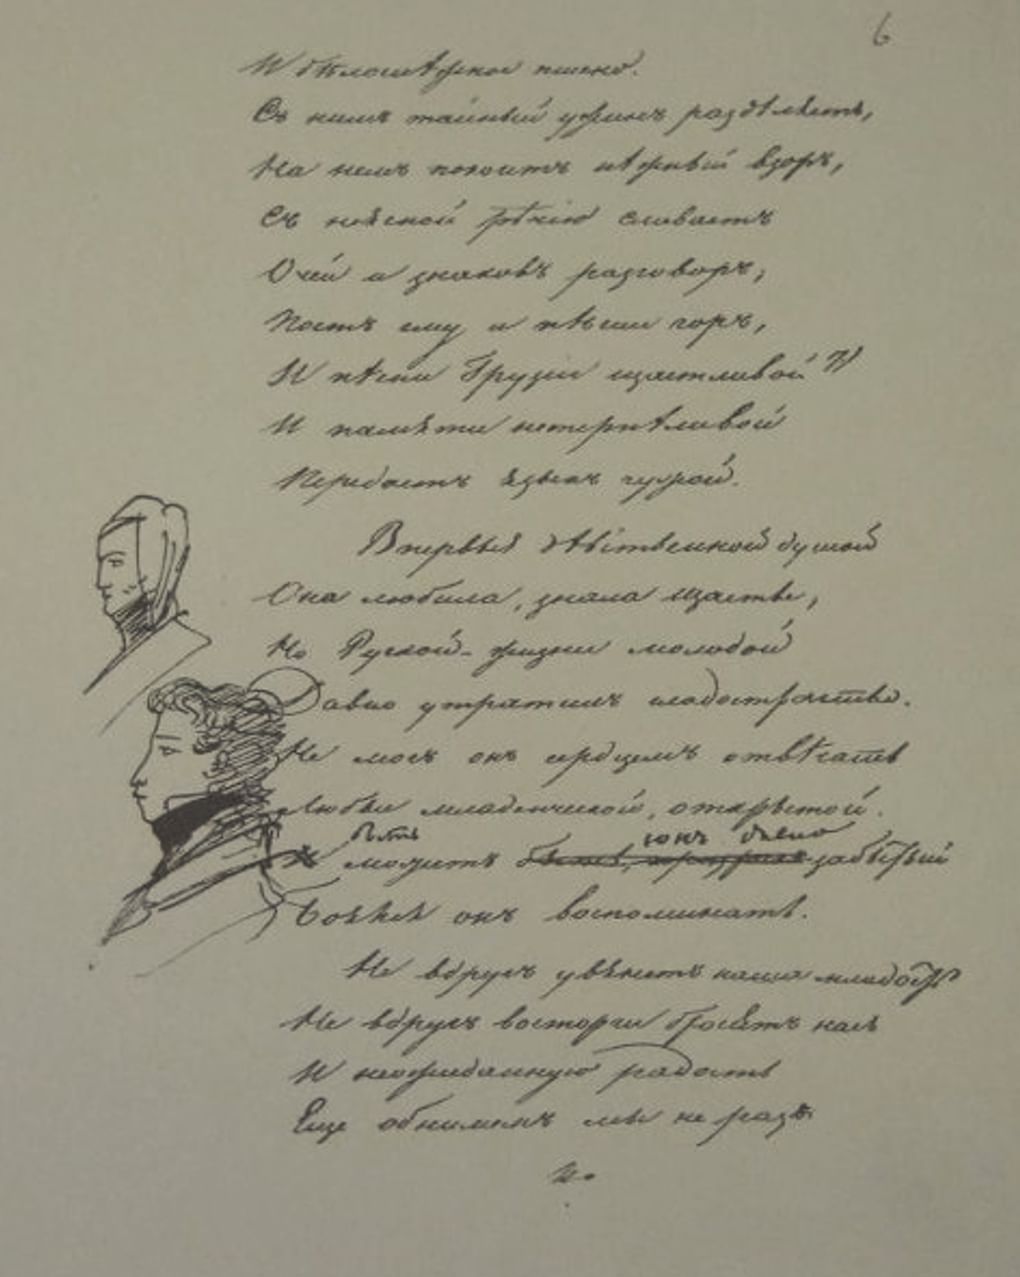 6
И бѣлоснѣжное пшено.
Съ нимъ тайный ужинъ раздѣляетъ,
На немъ покоитъ нѣжный взоръ,
Съ неясной рѣчію сливаетъ
Очей и знаковъ разговоръ,
Поетъ ему и пѣсни горъ,
И пѣсни Грузіи щастливой 7)
И памяти нетерпѣливой
Передаетъ языкъ чужой.
Впервыя дѣвственной душой
Она любила, знала щастье,
Но Руской жизни молодой
Давно утратилъ сладострастье.
Не могъ онъ сердцемъ отвѣчать
Любви младенческой, открытой.
быть сонъ
можетъ забытый
Боялся онъ воспоминать.
Не вдругъ увянетъ наша младость
Не вдругъ восторги бросятъ насъ
И неожиданную радость
Еще обнимемъ мы не разъ